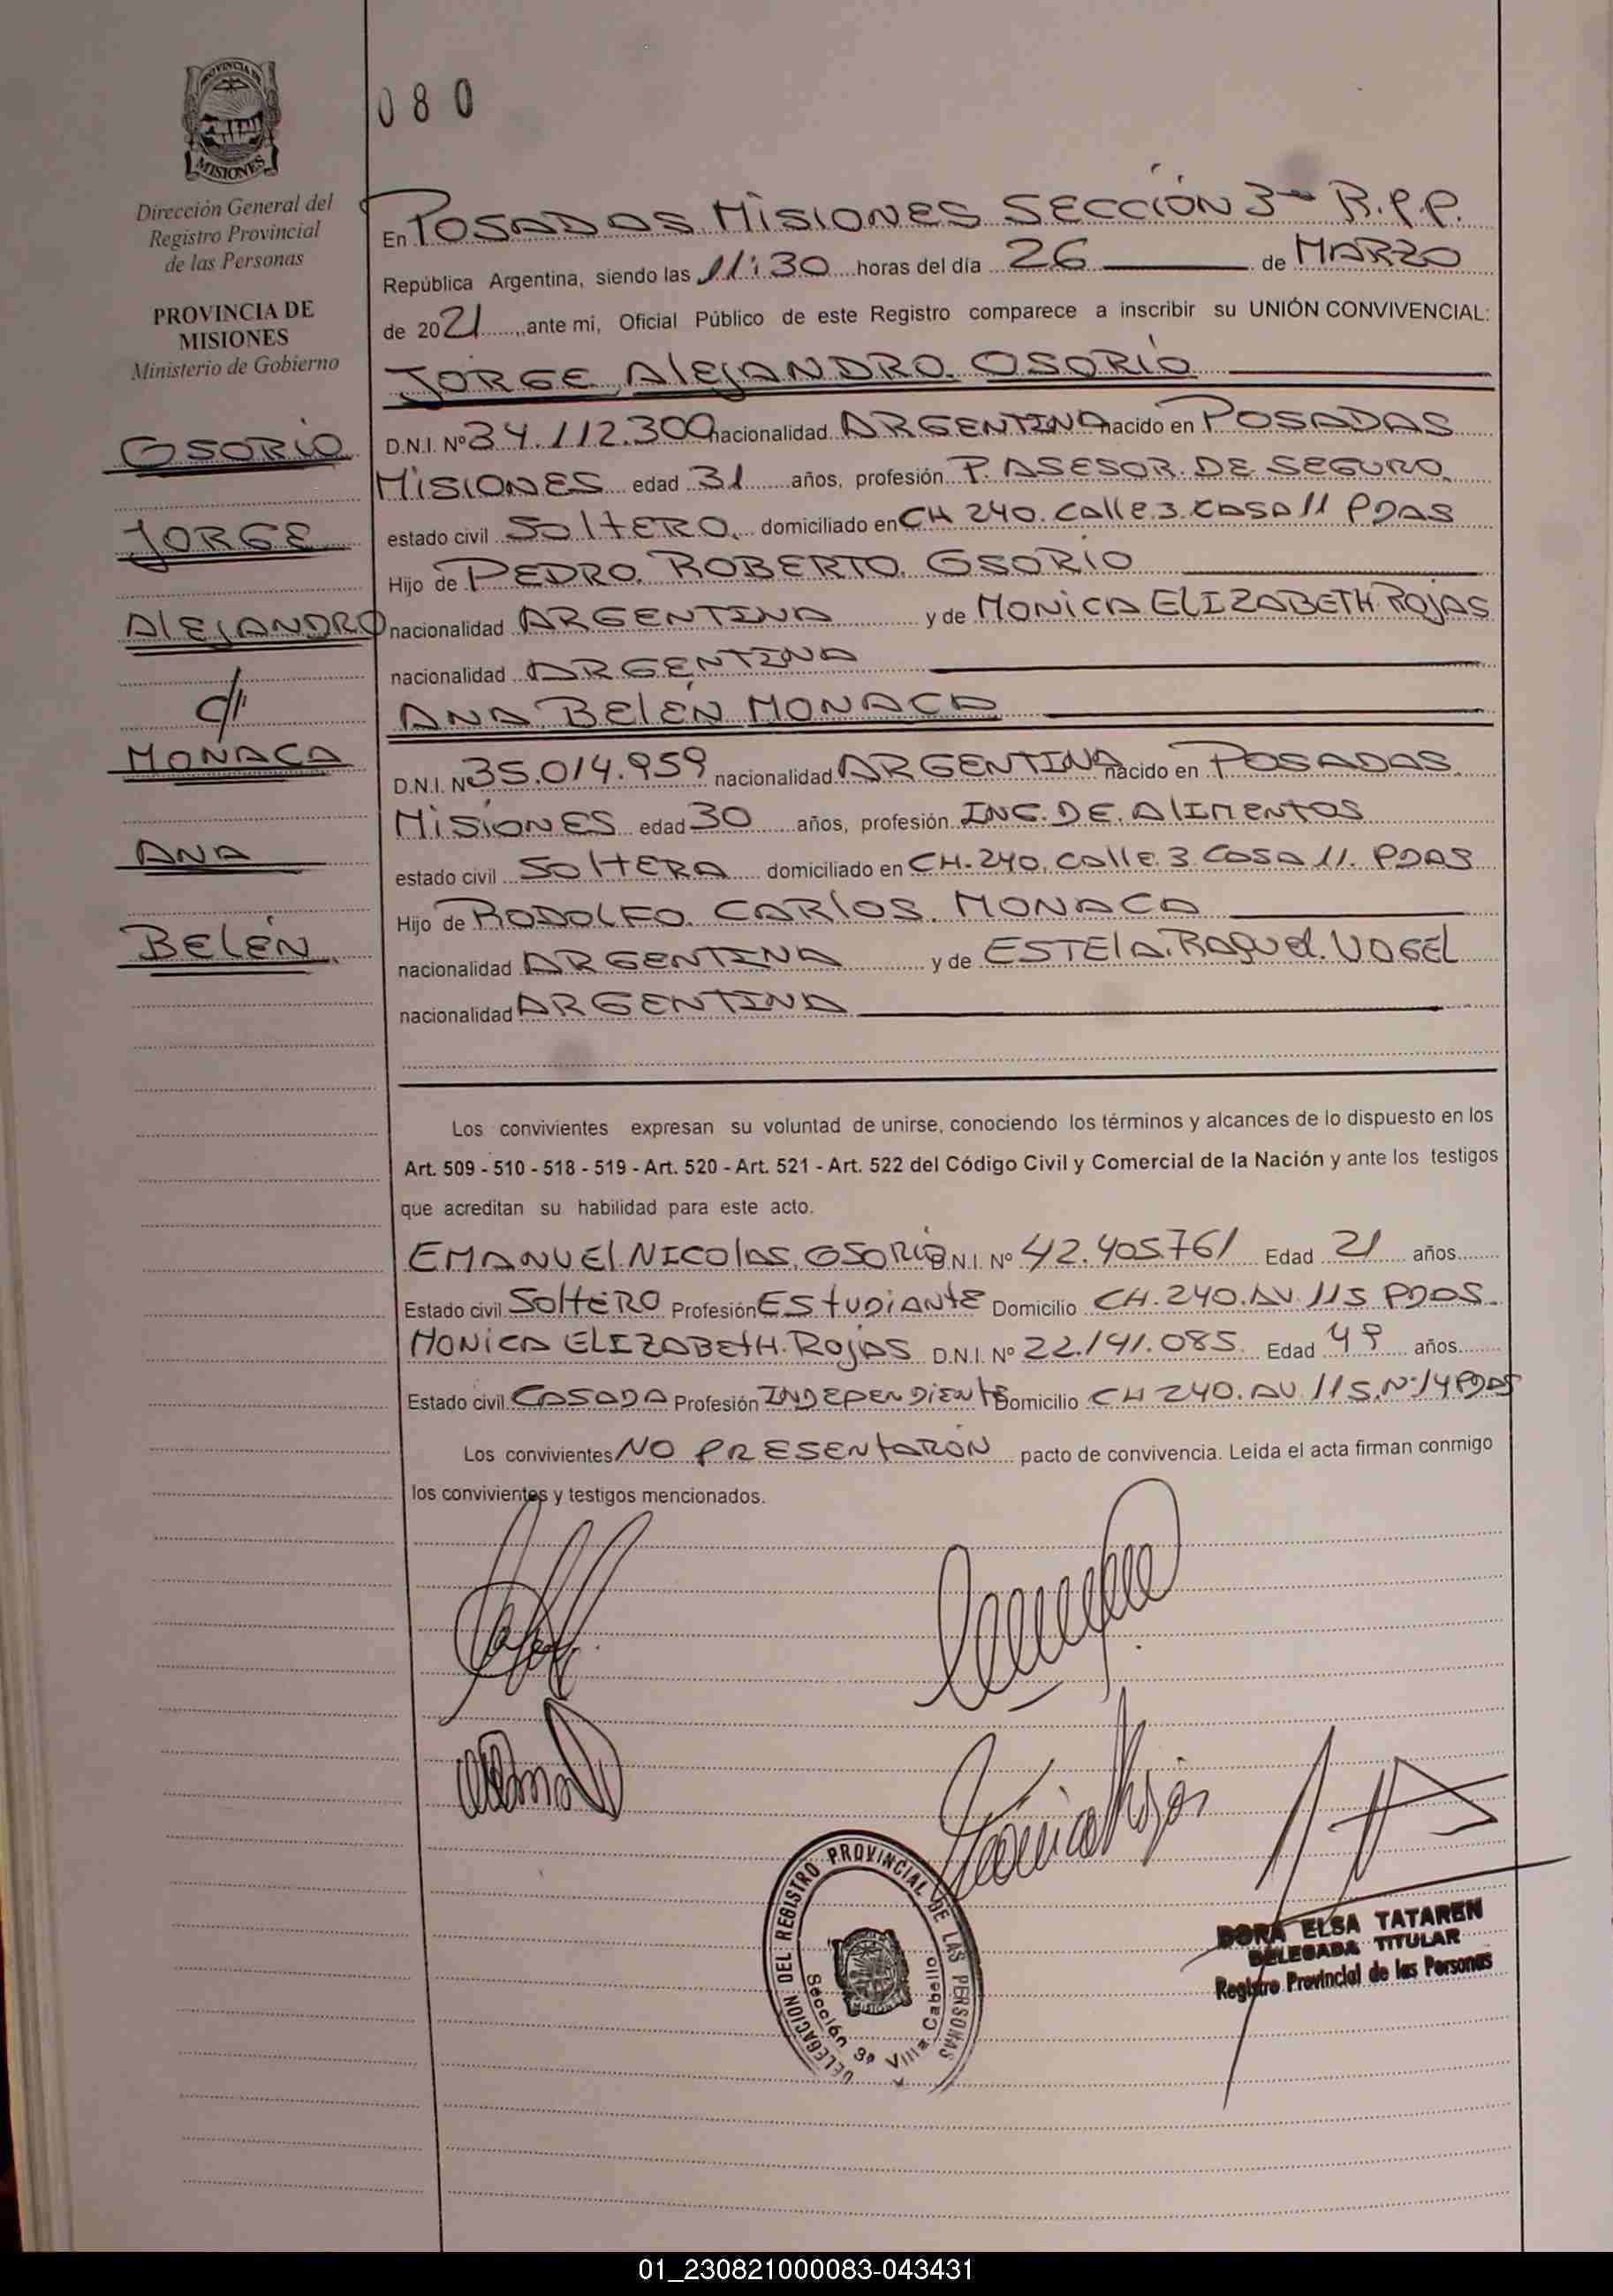 PROVINCIA DE
MISIONES
Dirección General del
Registro Provincial
de las Personas
PROVINCIA DE
MISIONES
Ministerio de Gobierno
OSORIO
JORGE
AlEJANDRO
c/
MONACA
ANA
BELÉN.
080
En POSADAS MISIONES SECCIÓN 3ª R.P.P.
República Argentina, siendo las 11:30 horas del día 26 de MARZO
de 2021, ante mi, Oficial Público de este Registro comparece a inscribir su UNIÓN CONVIVENCIAL:
JORGE AlEJANDRO OSORIO
D.N.I. Nº 34.112.300 nacionalidad ARGENTINA nacido en POSADAS
MISIONES edad 31 años, profesión P. ASESOR DE SEGURO
estado civil SOLTERO domiciliado en CH 240. Calle 3 CASA 11 PDAS
Hijo de PEDRO ROBERTO OSORIO
nacionalidad ARGENTINA y de MONICA ELIZABETH ROJAS
nacionalidad ARGENTINA
ANA BELÉN MONACA
D.N.I. Nº 35.014.959 nacionalidad ARGENTINA nacido en POSADAS
MISIONES edad 30 años, profesión ING. DE AlIMENTOS
estado civil SOLTERA domiciliado en CH-240, Calle 3 CASA 11. PDAS
Hijo de RODOLFO CARLOS MONACA
nacionalidad ARGENTINA y de ESTELA RAQUEL VOGEL
nacionalidad ARGENTINA
Los convivientes expresan su voluntad de unirse, conociendo los términos y alcances de lo dispuesto en los
Art. 509 - 510 - 518 - 519 - Art. 520 - Art. 521 - Art. 522 del Código Civil y Comercial de la Nación y ante los testigos
que acreditan su habilidad para este acto.
EMANUEL NICOLAS OSORIO D.N.I. Nº 42.405.761 Edad 21 años
Estado civil SOLTERO Profesión ESTUDIANTE Domicilio CH. 240. AV 115 PDAS.
MONICA ELIZABETH ROJAS D.N.I. Nº 22.141.085 Edad 49 años
Estado civil CASADA Profesión INDEPENDIENTE Domicilio CH 240. AV 115. Nº 14 PDAS
Los convivientes NO PRESENTARON pacto de convivencia. Leída el acta firman conmigo
los convivientes y testigos mencionados.
Monica Rojas
DELEGACION DEL REGISTRO PROVINCIAL DE LAS PERSONAS
Sección 3ª Villa Cabello
DORA ELSA TATAREN
DELEGADA TITULAR
Registro Provincial de las Personas
01_230821000083-043431